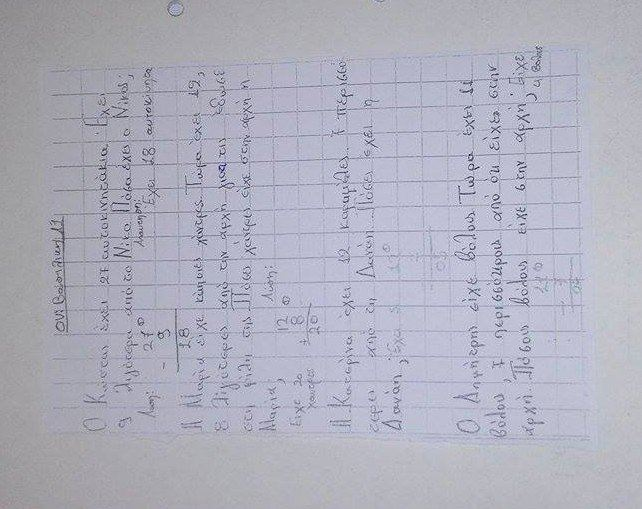 Ο Κώστας έχει 27 αυτοκινητάκια, Έχει
9 λιγότερα από το Νίκο. Πόσα έχει ο Νίκος;
Λύση: Απάντηση: Έχει 18 αυτοκίνητα
27
- 9
18
Η Μαρία είχε κάποιες χάντρες. Τώρα έχει 12,
8 λιγότερες από την αρχή γιατί έδωσε
στη φίλη της. Πόσες χάντρες είχε στην αρχή η
Μαρία; Λύση:
Είχε 20
χάντρες
12
+ 8
20
Η Κατερίνα έχει 12 καραμέλες. 7 περισσό
τερες από τη Δανάη. Πόσες έχει η
Δανάη; Έχει 5
12
- 7
05
Ο Δημήτρης είχε βόλους. Τώρα έχει 11
βόλους, 7 περισσότερους από ότι είχε στην
αρχή. Πόσους βόλους είχε στην αρχή; Είχε
4 βόλους
- 7
04